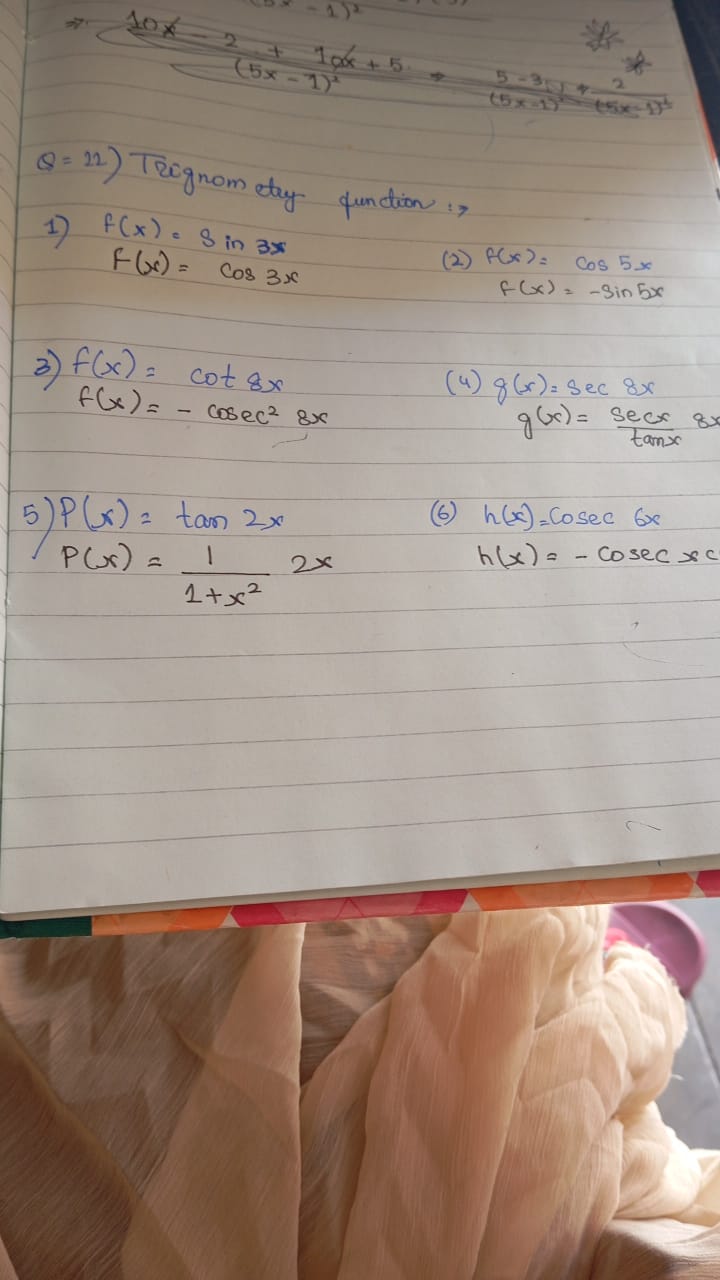 5x - 1)²
⇒ 10x - 2 + 10x + 5 ⇒ 5 - 3 ⇒ 2
(5x - 1)² (5x - 1)² (5x - 1)²
Q = 22) Trignometry function :⇒
1) f(x) = Sin 3x
f(x) = cos 3x
(2) f(x) = Cos 5x
f(x) = -Sin 5x
3) f(x) = cot 8x
f(x) = - cosec² 8x
(4) g(x) = Sec 8x
g(x) = secx 8x
tanx
5) P(x) = tan 2x
P(x) = 1 2x
1+x²
(6) h(x) = Cosec 6x
h(x) = - Cosec x c